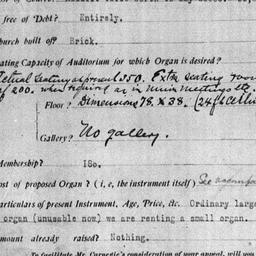 free of Debt? Entirely.
hurch built of? Brick.
ating Capacity of Auditorium for which Organ is desired?
Actual seating at present 350. Extra seating room
of 200. when required as in union meetings etc.
Floor? Dimensions 78 X 38. (24 ft Ceiling
Gallery? No gallery.
Membership? 180.
ost of proposed Organ? (i, e, the instrument itself) See
articulars of present Instrument, Age, Price, &c. Ordinary large
organ (unusable now) we are renting a small organ.
mount already raised? Nothing.
To facilitate Mr. Carnegie's consideration of your appeal, will you